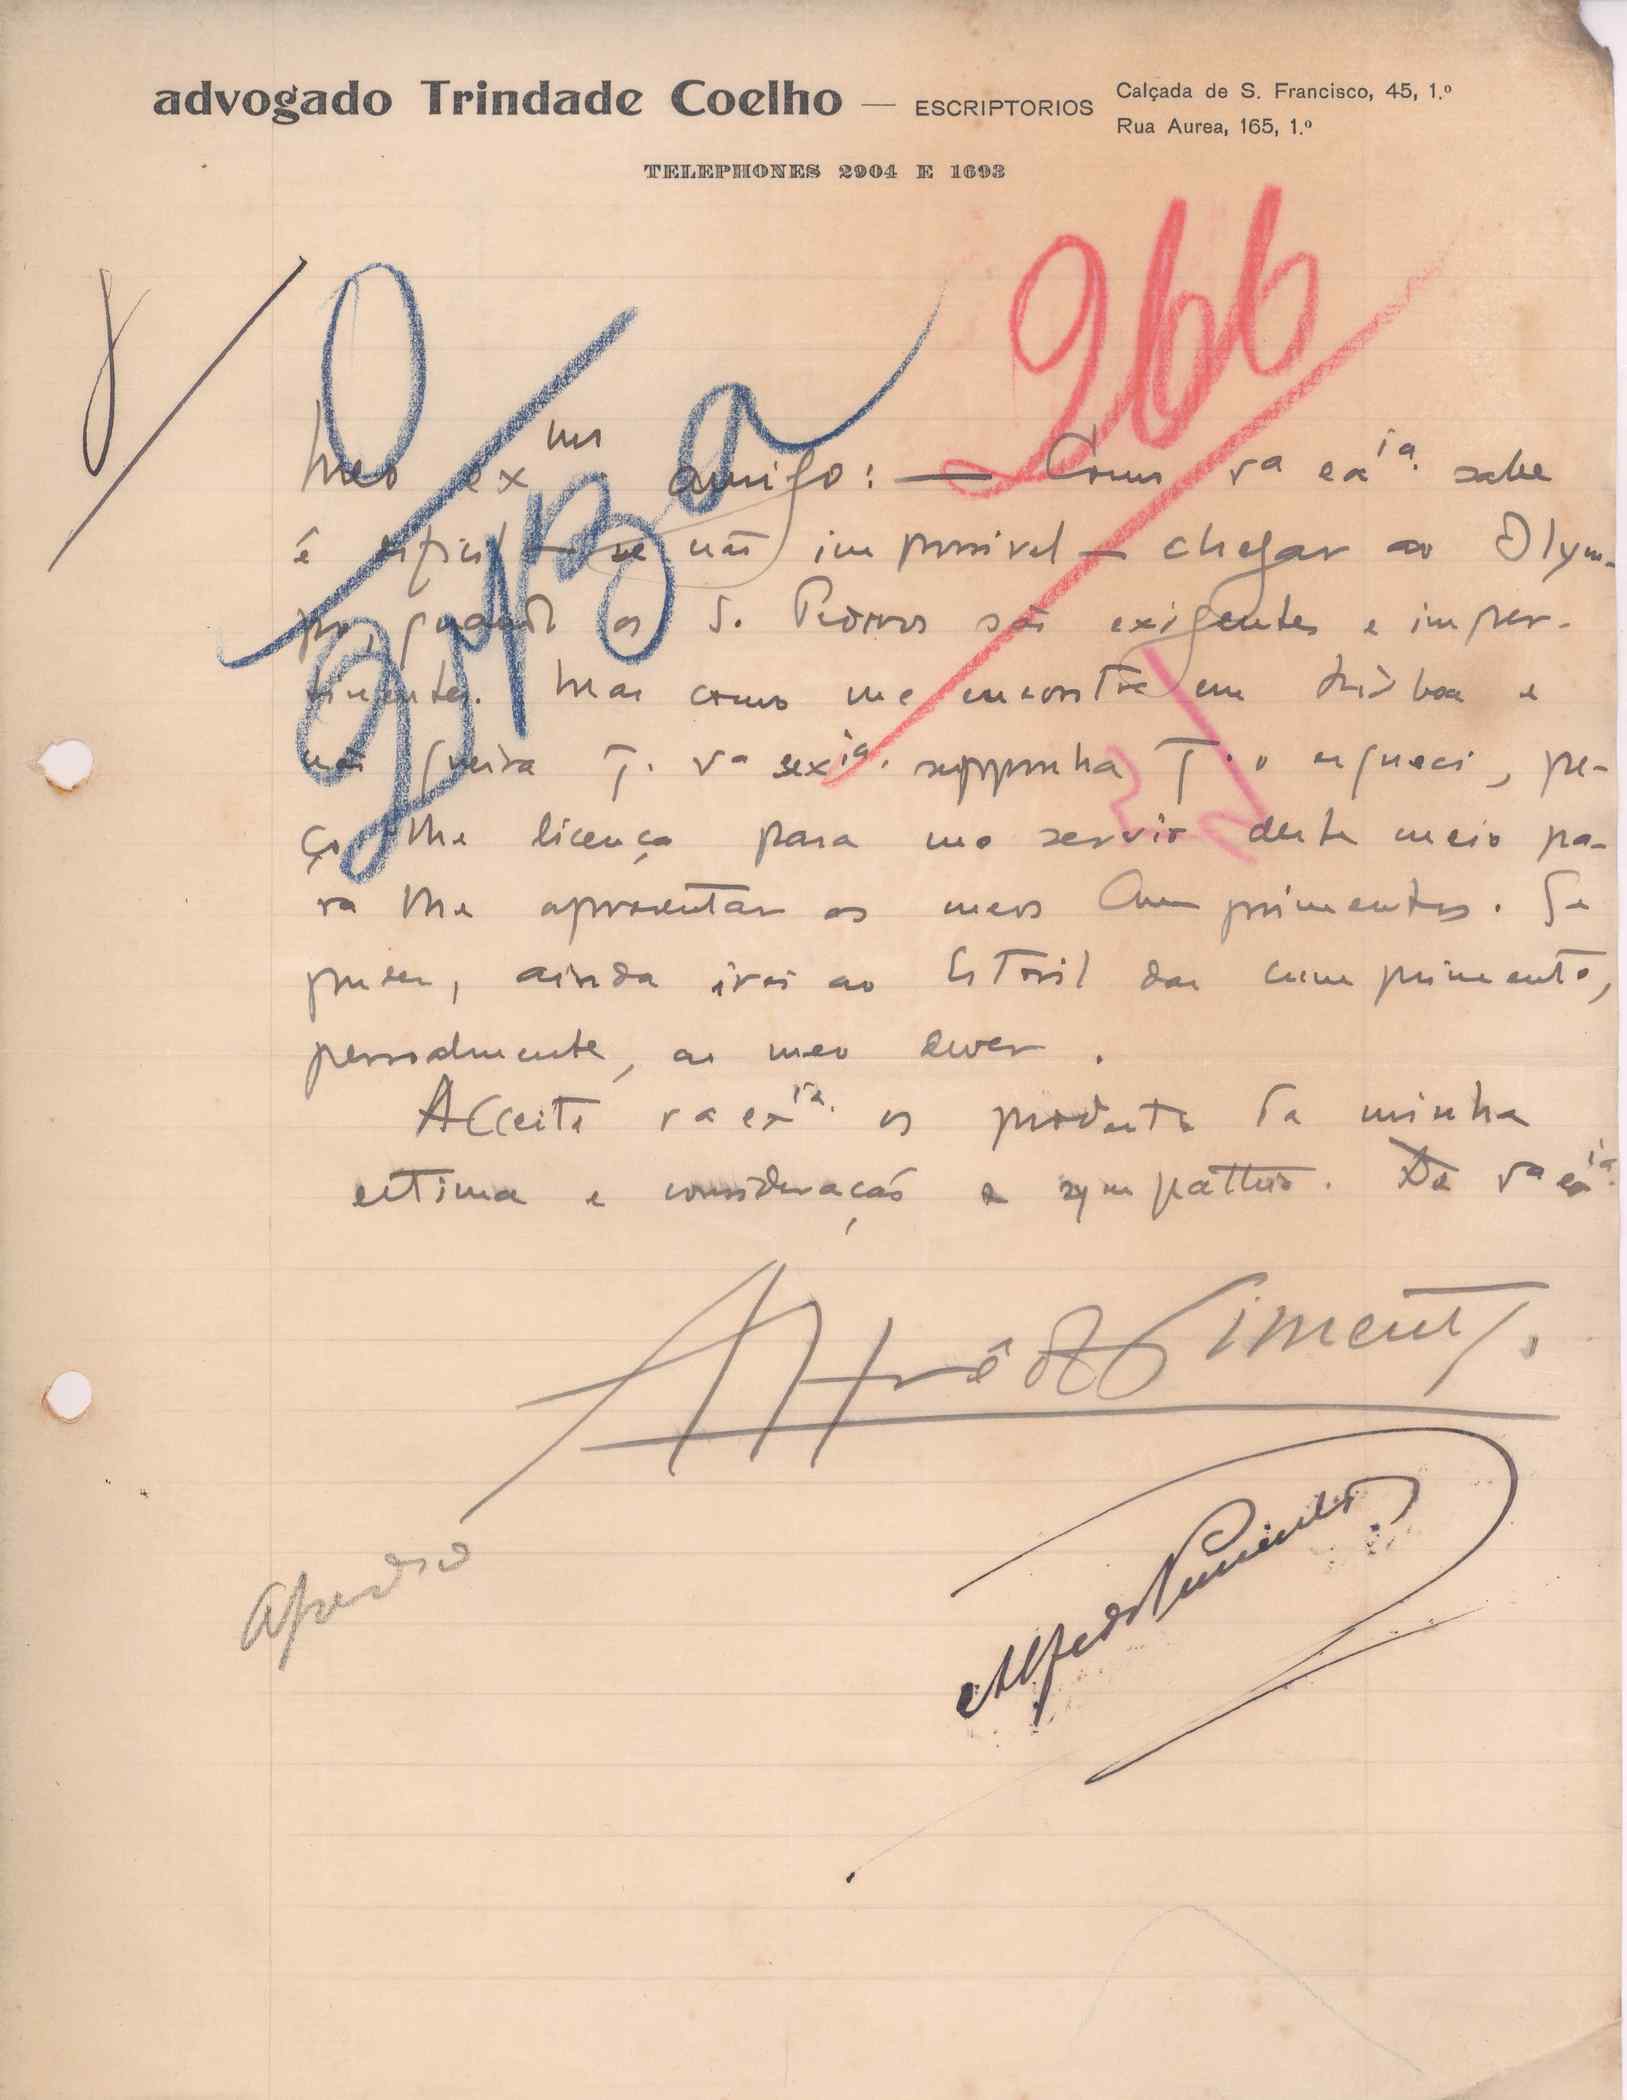 advogado Trindade Coelho — ESCRIPTORIOS Calçada de S. Francisco, 45, 1.º
Rua Aurea, 165, 1.º
TELEPHONES 2904 E 1693
266
Meu exmo amigo: — Como va exia. sabe
é dificil — se não impossivel — chegar ao Olym-
po, quando os S. Pedros são exigentes e imper-
tinentes. Mas como me encontro em Lisboa e
não queira q. va exia. supponha q. o esqueci, pe-
ço-lhe licença para me servir deste meio pa-
ra lhe apresentar os meus cumprimentos. Se
puder, ainda irei ao Estoril dar cumprimento,
pessoalmente, ao meu dever.
Acceite va exia. os protestos da minha
estima e consideração e sympathia. De va exia.
Alfrêdo Pimenta.
Alfredo Pimenta